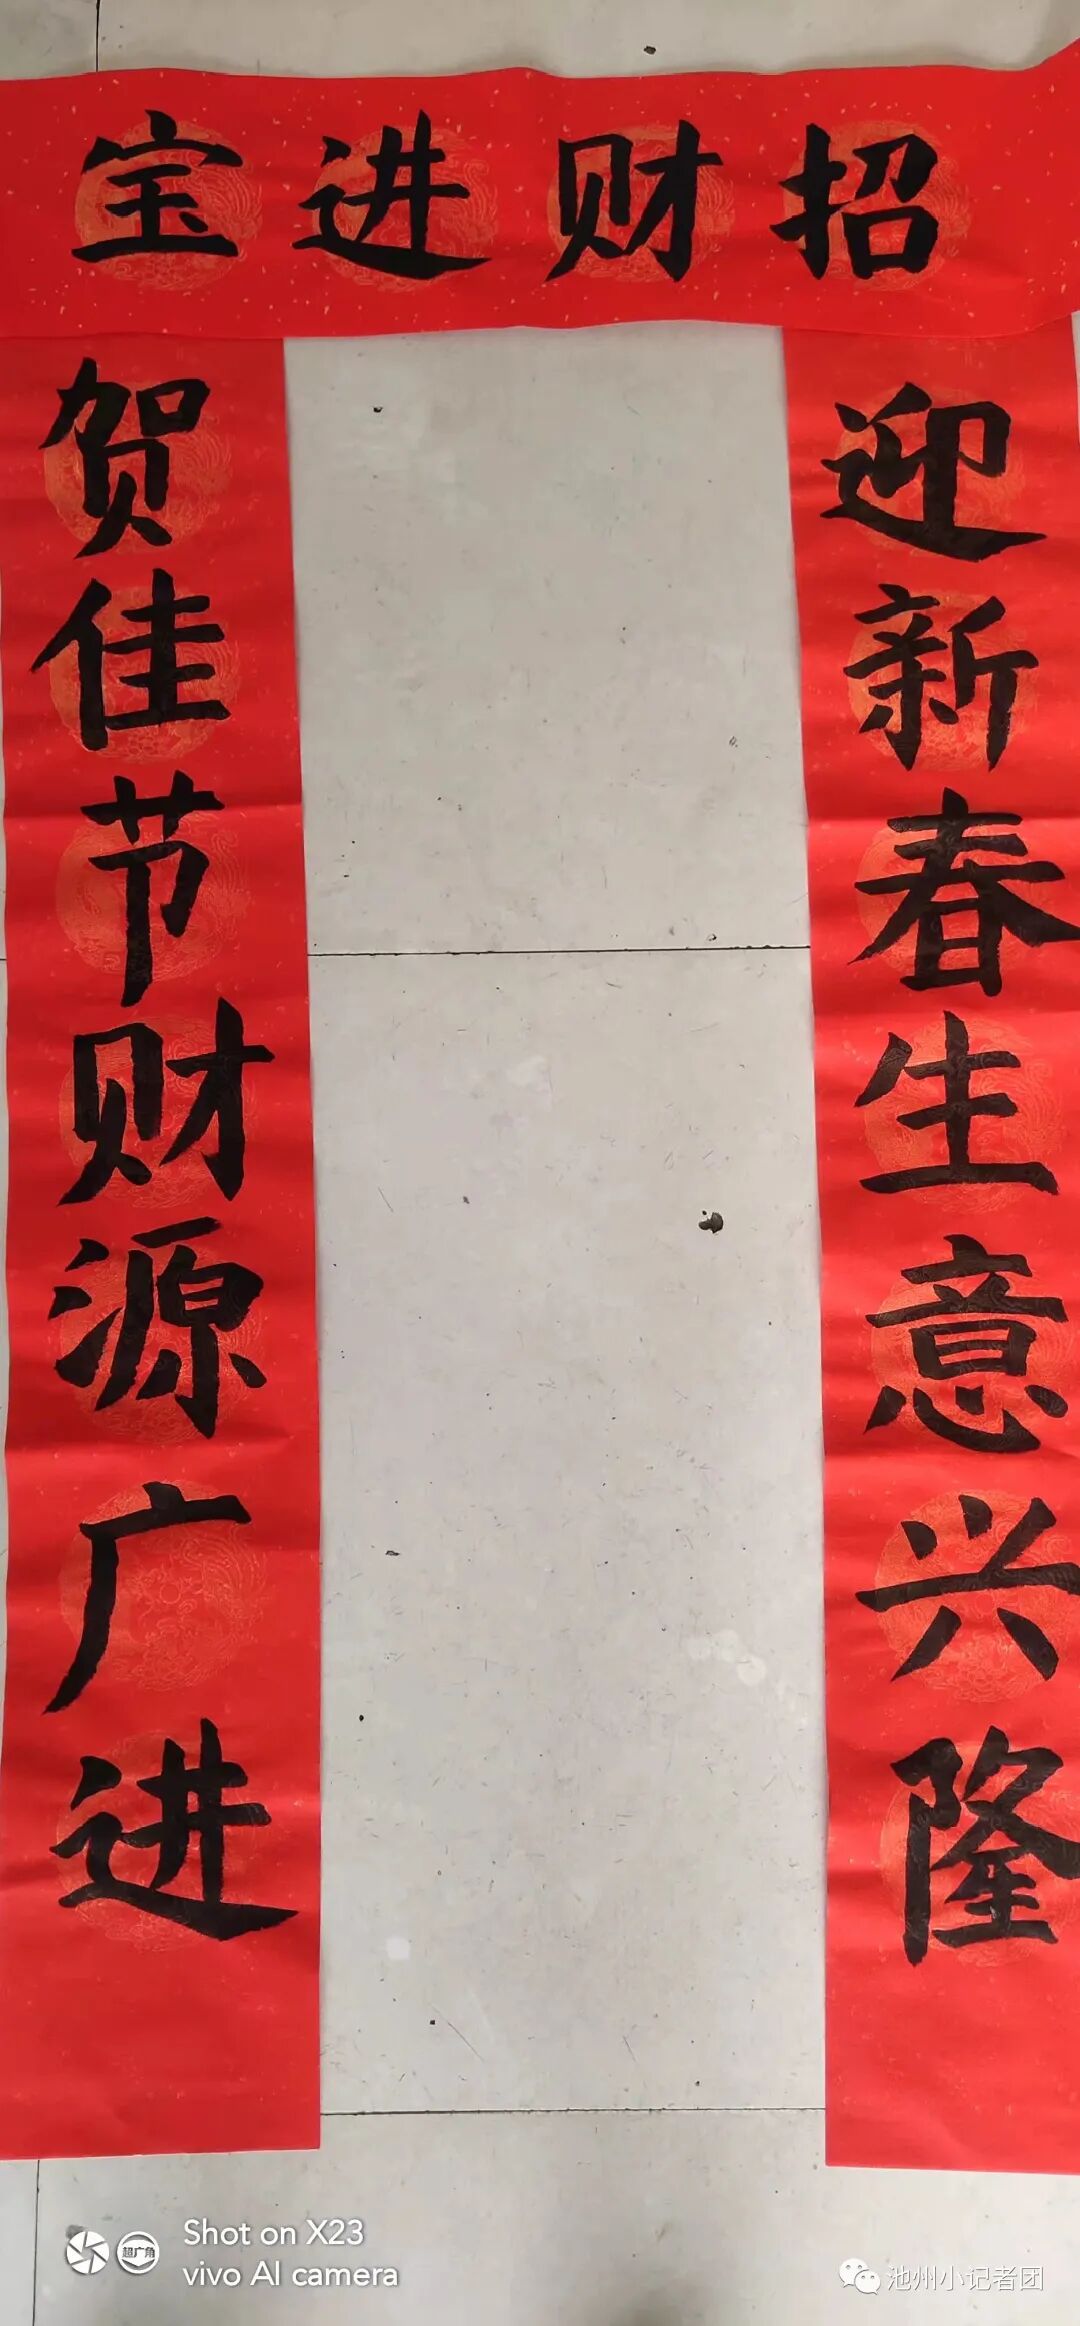 招财进宝
迎新春生意兴隆
贺佳节财源广进
Shot on X23
vivo AI camera
超广角
池州小记者团